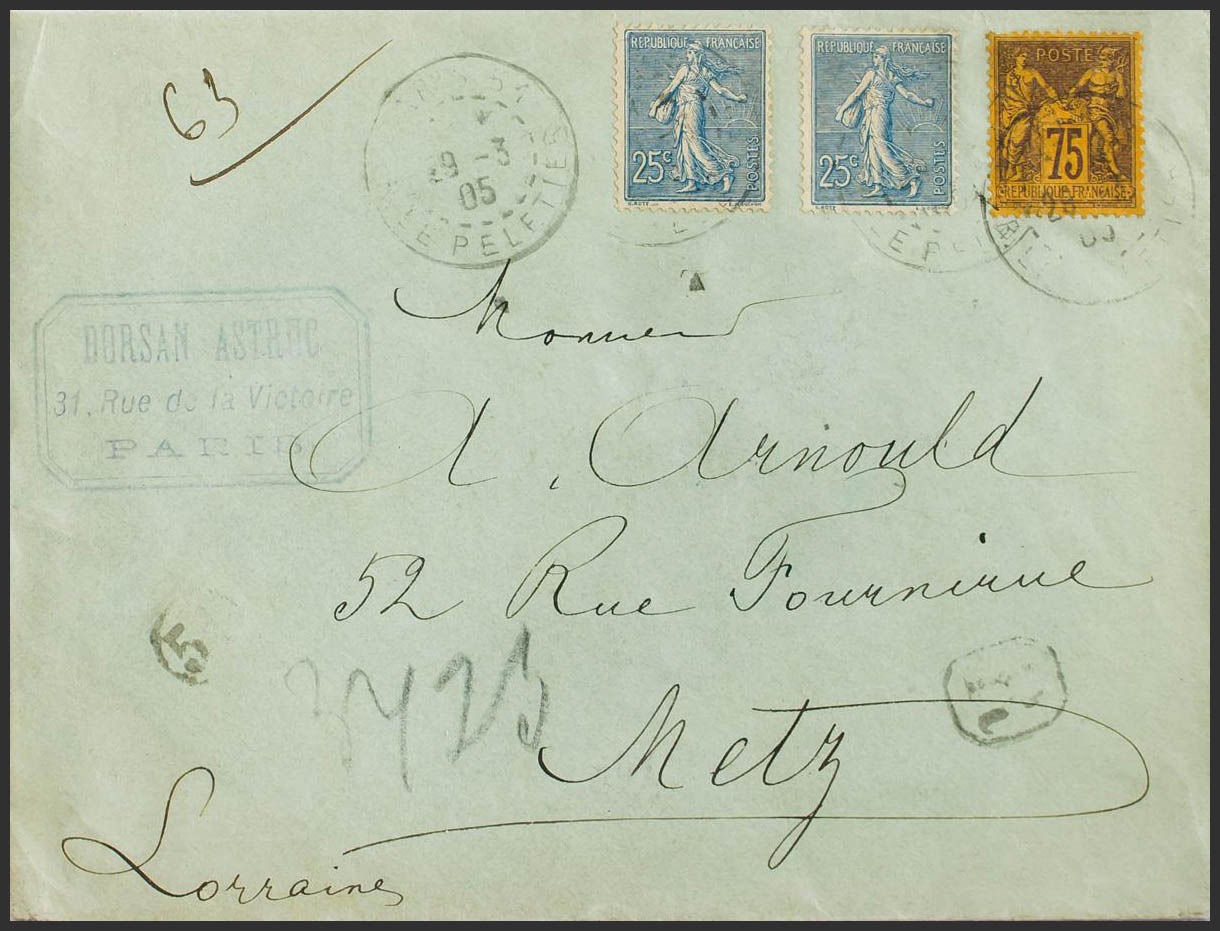 63
REPUBLIQUE FRANÇAISE
25c
POSTES
REPUBLIQUE FRANÇAISE
25c
POSTES
POSTE
75
REPUBLIQUE FRANÇAISE
29 -3
05
LE PELETIER
LE PEL
DORSAN ASTRUC
31, Rue de la Victoire
PARIS
Monsieur
A. Arnould
52 Rue Fournirue
3423
Metz
Lorraine
R